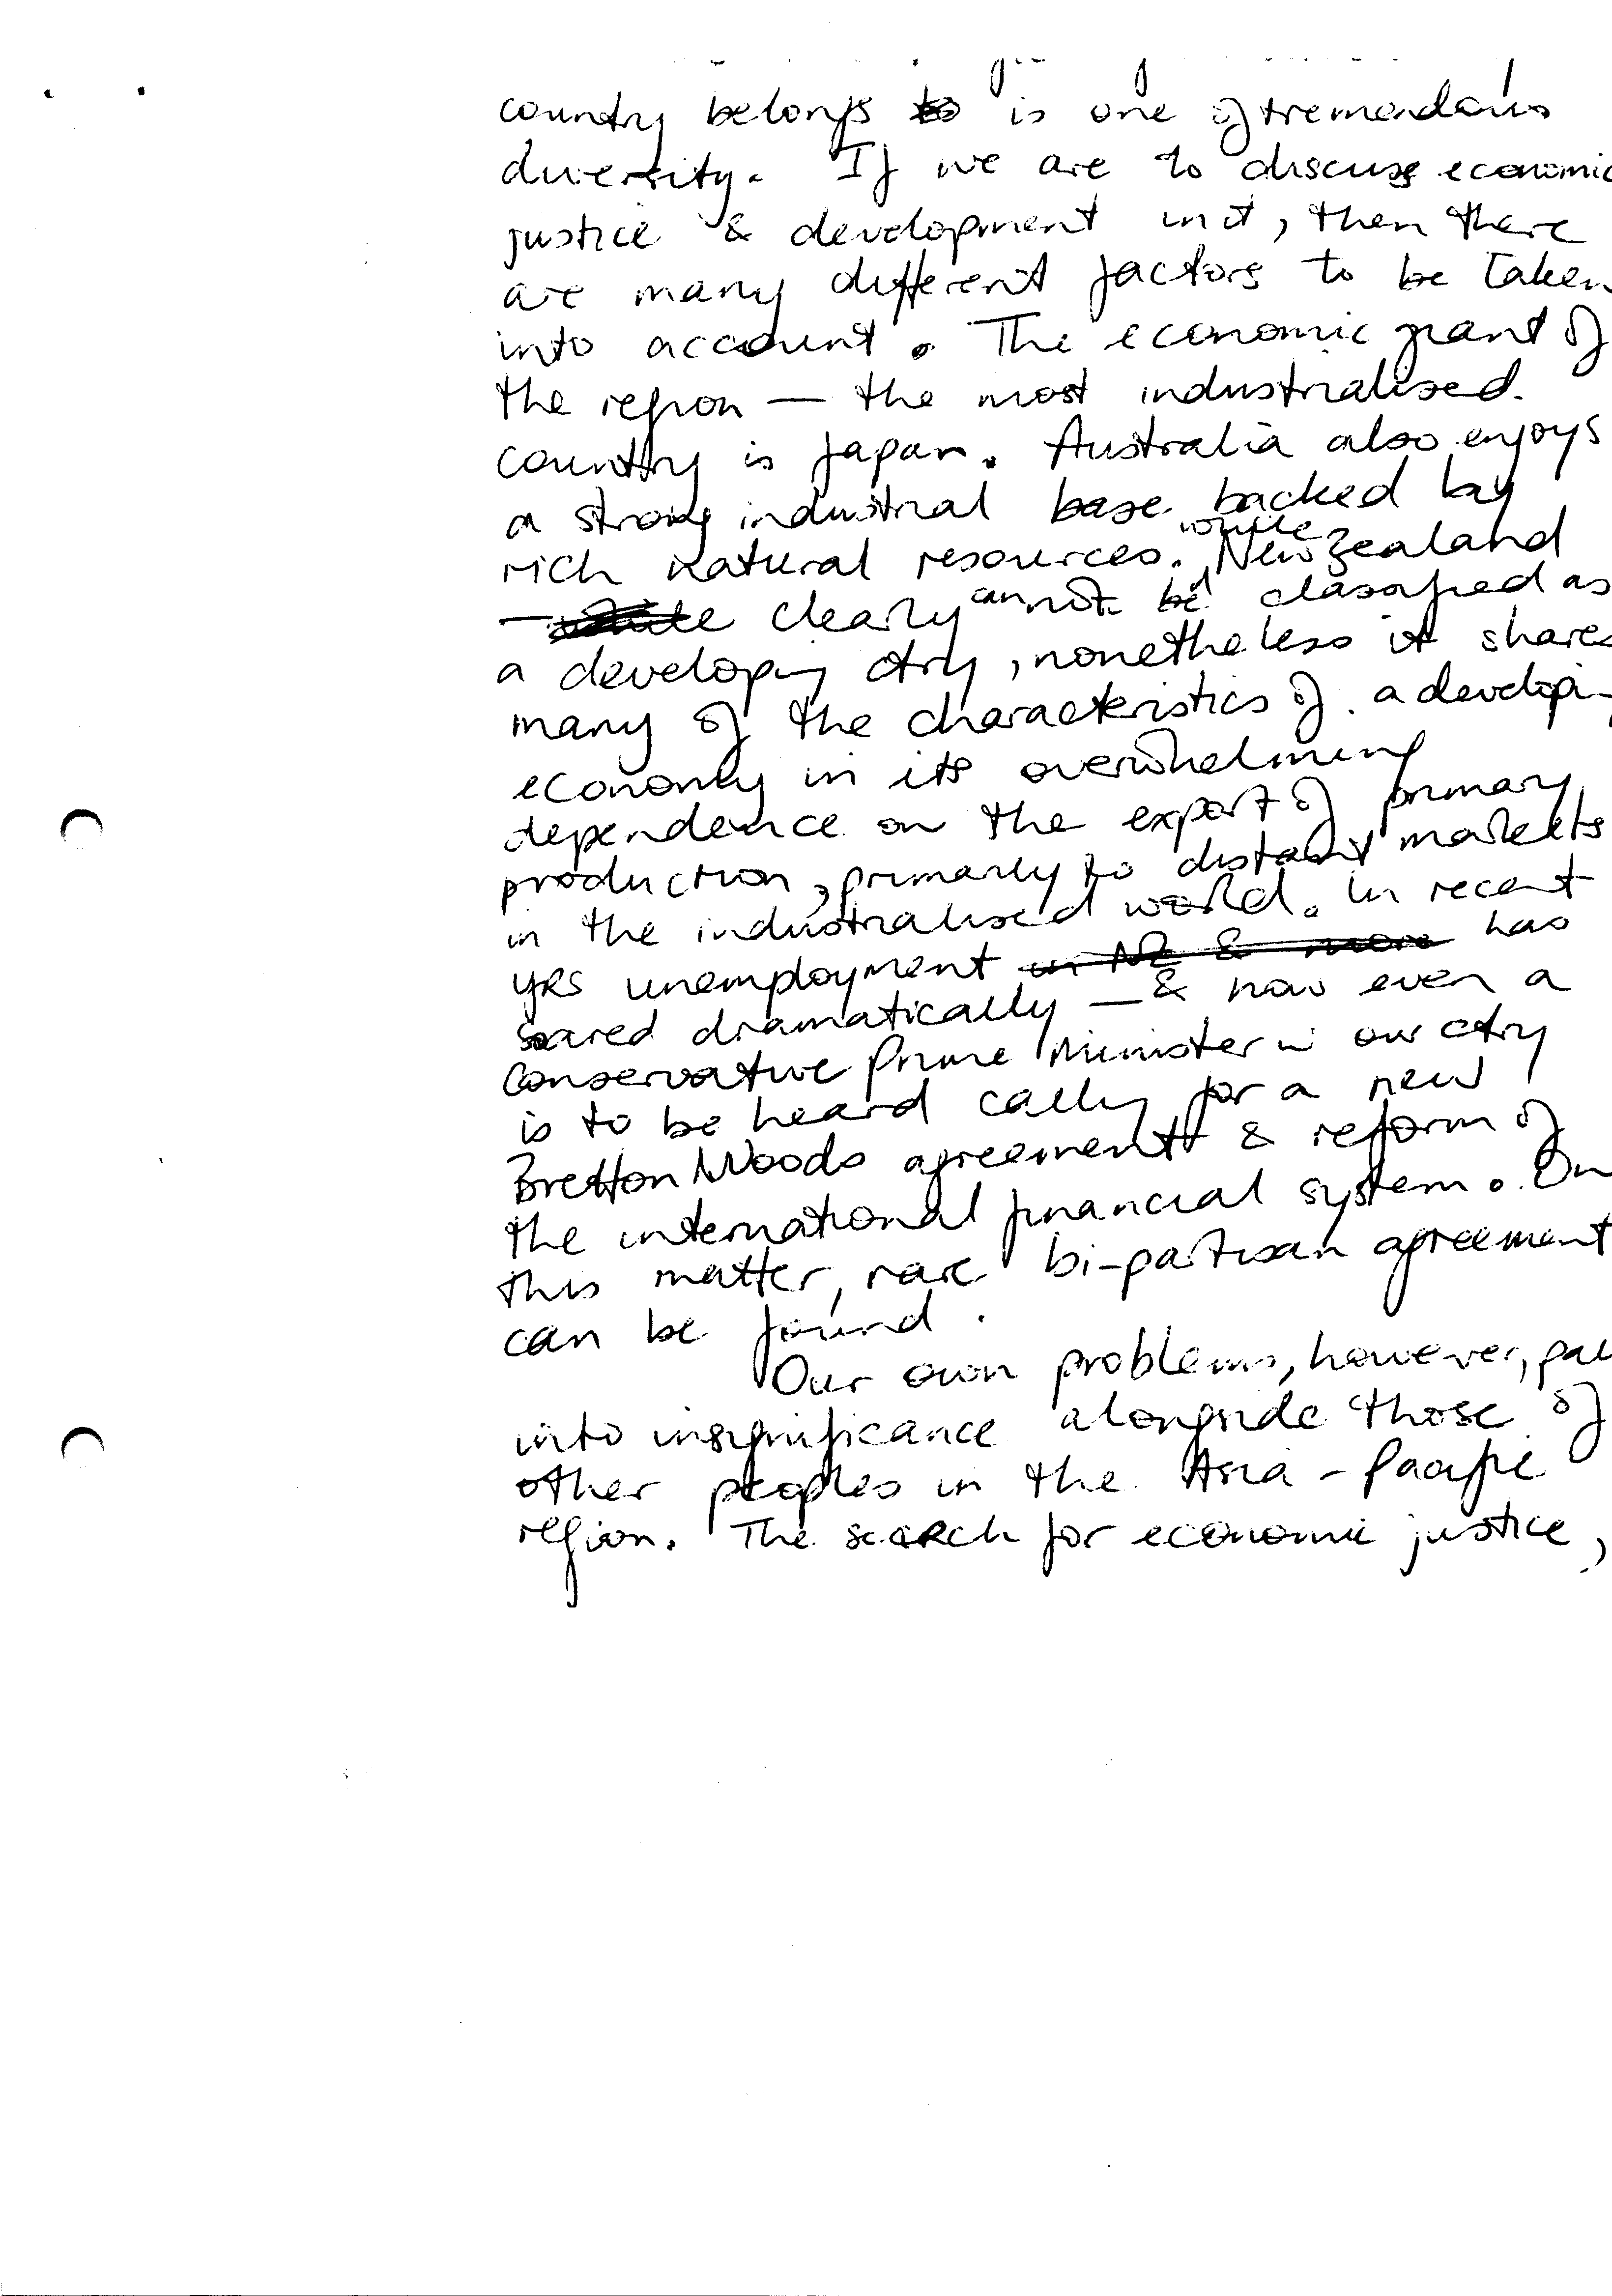 country belongs is one of tremendous
diversity. If we are to discuss economic
justice & development in it, then there
are many different factors to be taken
into account. The economic giant of
the region — the most industrialised
country is Japan. Australia also enjoys
a strong industrial base backed by
rich natural resources. while New Zealand
— clearly cannot be classified as
a developing ctry, nonetheless it shares
many of the characteristics of a developing
economy in its overwhelming
dependence on the export of primary
production, primarily to distant markets
in the industrialised world. In recent
yrs unemployment in NZ & more has
soared dramatically — & now even a
Conservative Prime Minister in our ctry
is to be heard calling for a new
Bretton Woods agreement & reform of
the international financial system. On
this matter, rare bi-partisan agreement
can be found.
Our own problems, however, pale
into insignificance alongside those of
other peoples in the Asia-Pacific
region. The search for economic justice,